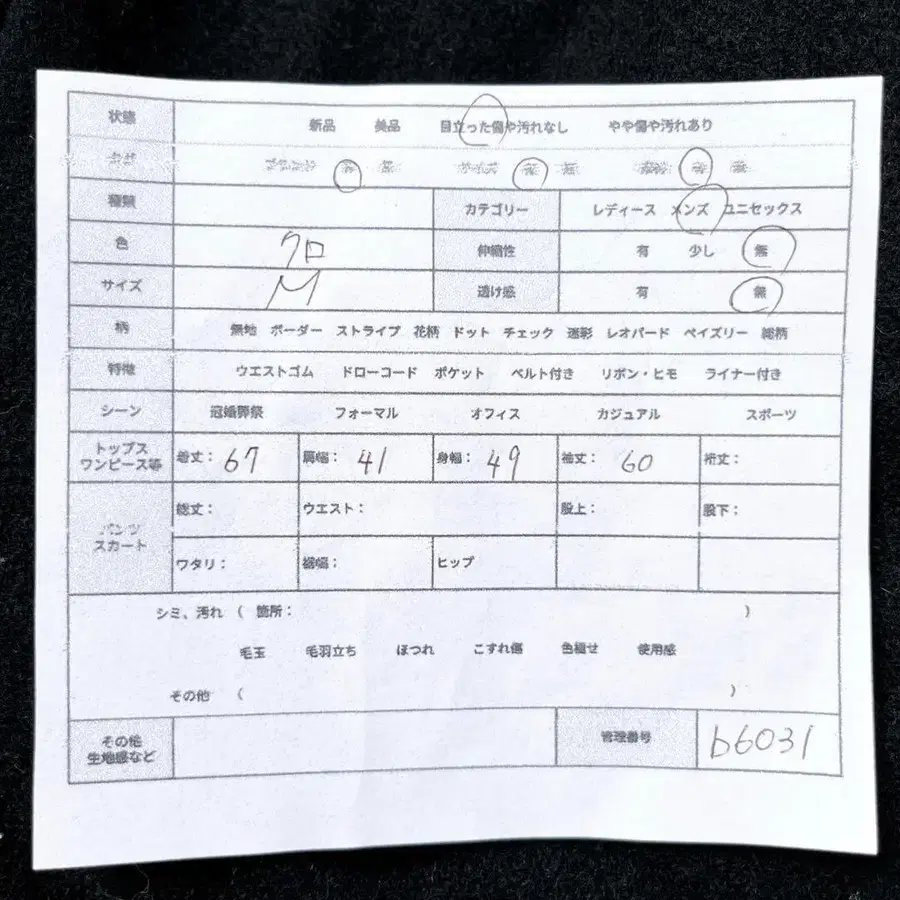 状態 新品 美品 目立った傷や汚れなし やや傷や汚れあり
種類 カテゴリー レディース メンズ ユニセックス
色 クロ 伸縮性 有 少し 無
サイズ M 透け感 有 無
柄 無地 ボーダー ストライプ 花柄 ドット チェック 迷彩 レオパード ペイズリー 総柄
特徴 ウエストゴム ドローコード ポケット ベルト付き リボン・ヒモ ライナー付き
シーン 冠婚葬祭 フォーマル オフィス カジュアル スポーツ
トップス
ワンピース等 着丈:67 肩幅:41 身幅:49 袖丈:60 裄丈:
パンツ
スカート 総丈: ウエスト: 股上: 股下:
ワタリ: 裾幅: ヒップ
シミ、汚れ ( 箇所: )
毛玉 毛羽立ち ほつれ こすれ傷 色褪せ 使用感
その他 ( )
その他
生地感など 管理番号 b6031